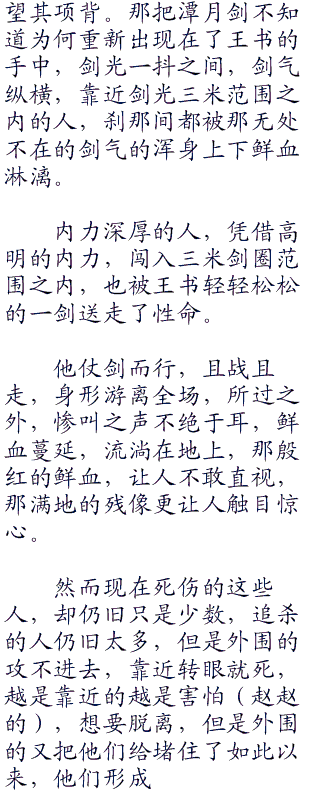 望其项背。那把潭月剑不知
道为何重新出现在了王书的
手中，剑光一抖之间，剑气
纵横，靠近剑光三米范围之
内的人，刹那间都被那无处
不在的剑气的浑身上下鲜血
淋漓。
内力深厚的人，凭借高
明的内力，闯入三米剑圈范
围之内，也被王书轻轻松松
的一剑送走了性命。
他仗剑而行，且战且
走，身形游离全场，所过之
外，惨叫之声不绝于耳，鲜
血蔓延，流淌在地上，那殷
红的鲜血，让人不敢直视，
那满地的残像更让人触目惊
心。
然而现在死伤的这些
人，却仍旧只是少数，追杀
的人仍旧太多，但是外围的
攻不进去，靠近转眼就死，
越是靠近的越是害怕（赵赵
的），想要脱离，但是外围
的又把他们给堵住了如此以
来，他们形成